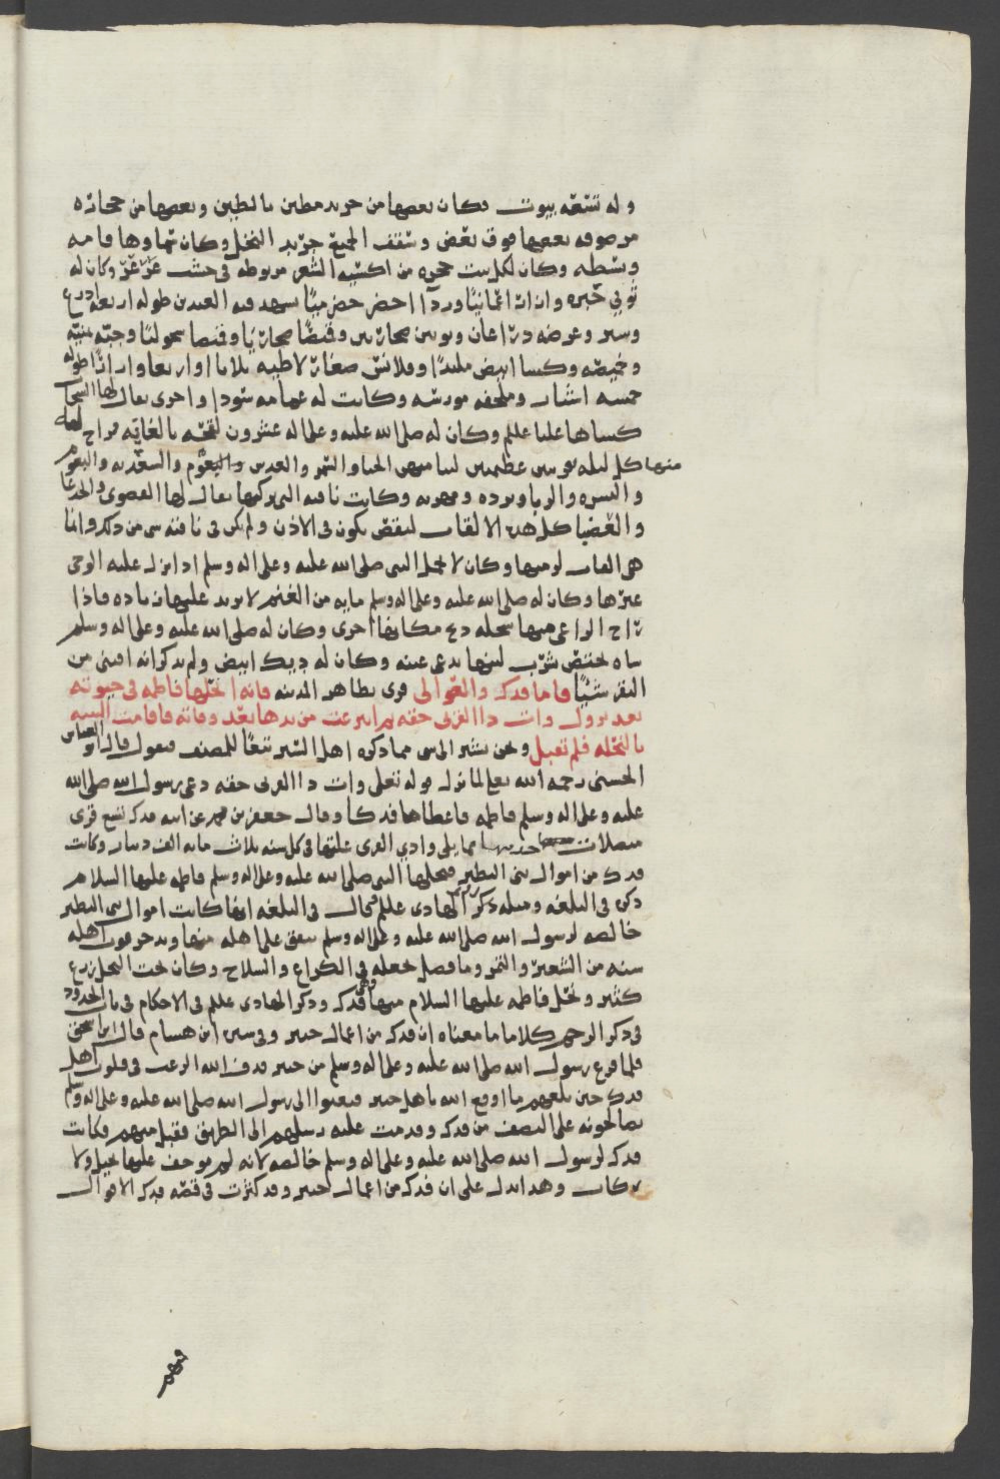 وله تسعة بيوت فكان بعضها من جريد مطين بالطين وبعضها من حجارة
مرصوفه بعضها فوق بعض وسقف الجميع جريد النخل وكان سماوها قامه
وبسطه وكان لكل بيت حجره من اكسيه الشعر مربوطه في خشب عرعر وكان له
ثوبي حبره وازارا عمانيا وردآا اخضر حضرميا يشهد فيه العيدين طوله اربعه اذرع
وشبر وعرضه ذراعان وثوبين صحاريين وقميصا صحاريا وقميصا سحوليا وجبه يمنيه
وخميصه وكسا ابيض ملبدا وقلانس صغارا لاطيه ثلاثا او اربعا وازارا طوله
خمسه اشبار وملحفه مورسه وكانت له عمامه سودا واخرى يقال لها السحاب
كساها عليا عليلم وكان له صلى الله عليه وعلى اله عشرون لقحه بالغابه يراح اليه
منها كل ليله بقربتين عظيمتين لبنا منهن الحنا والسمر والعريس والبغوم والسعديه والبغوم
واليسره والريا وبرده ومهريه وكانت ناقته التي يركبها يقال لها القصوى والجدعا
والعضبا كل هذه الالقاب لنقص يكون في الاذن ولم يكن في ناقته شي من ذلك وانما
هي القاب لزمتها وكان لا يحمل النبي صلى الله عليه وعلى اله وسلم اذا نزل عليه الوحي
غيرها وكان له صلى الله عليه وعلى اله وسلم مايه من الغنم لا يريد عليهن زياده فاذا
راح الراعي منها سخله ذبح مكانها اخرى وكان له صلى الله عليه وعلى اله وسلم
شاه يختص بشرب لبنها تدعى غيثه وكان له ديك ابيض ولم يذكر انه اقتنى من
البقر شيئا فاما فدك والعوالى قرى بظاهر المدينه فانه انحلها فاطمه في حيوته
بعد نزول وات ذا القربى حقه ثم انتزعت من يدها بعد وفاته فاقامت البينه
بالنحله فلم تقبل ونحن نشير الى شي مما ذكره اهل السير تبعا للمصنف فنقول قال ابو العباس
الحسني رحمه الله تعالى لما نزل قوله تعلى وات ذا القربى حقه دعى رسول الله صلى الله
عليه وعلى اله وسلم فاطمه فاعطاها فدكا وقال جعفر بن محمد عن ابيه فدك تسع قرى
متصلات حد منها مما يلي وادي القرى غلتها في كل سنه ثلاث مايه الف دينار وكانت
فدك من اموال بني النظير فنحلها النبي صلى الله عليه وعلى اله وسلم فاطمه عليها السلام
ذكره في البلغه ومثله ذكر الهادي عليلم فقال في البلغه انها كانت اموال بني النظير
خالصه لرسول الله صلى الله عليه وعلى اله وسلم ينفق على اهله منها ويدخر قوت اهله
سنه من الشعير والتمر وما فضل جعله في الكراع والسلاح وكان تحت النخل زرع
كثير ونحل فاطمه عليها السلام منها فدك وذكر الهادي عليلم في الاحكام في باب الحدود
في ذكر الرجم كلاما ما معناه ان فدك من اعمال خيبر وفي سيره ابن هشام قال ابن اسحق
فلما فرغ رسول الله صلى الله عليه وعلى اله وسلم من خيبر قذف الله الرعب في قلوب اهل
فدك حين بلغهم ما اوقع الله باهل خيبر فبعثوا الى رسول الله صلى الله عليه وعلى اله وسلم
يصالحونه على النصف من فدك وقدمت عليه رسلهم الى الطريق فقبل منهم فكانت
فدك لرسول الله صلى الله عليه وعلى اله وسلم خالصه لانه لم يوجف عليها بخيل ولا
ركاب وهذا يدل على ان فدك من اعمال خيبر وقد كثرت في قصه فدك الاقوال